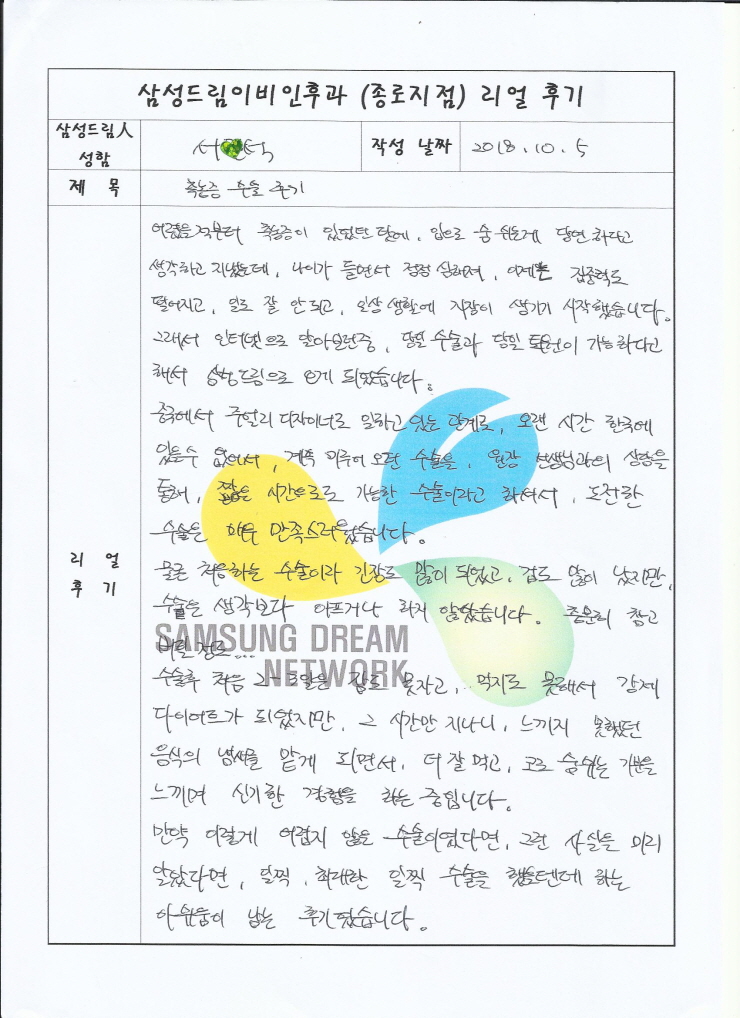 삼성드림이비인후과 (종로지점) 리얼 후기
삼성드림人 성함 서 석 작성 날짜 2018. 10. 5
제 목 축농증 수술 후기
리 얼 후 기
어렸을적부터 축농증이 있었던 탓에, 입으로 숨 쉬는게 당연하다고
생각하고 지냈는데, 나이가 들면서 점점 심해져, 이제는 집중력도
떨어지고, 일도 잘 안되고, 일상 생활에 지장이 생기기 시작했습니다.
그래서 인터넷으로 알아보던중, 당일 수술과 당일 퇴원이 가능하다고
해서 삼성드림으로 오게 되었습니다.
중국에서 주얼리 디자이너로 일하고 있는 관계로, 오랜 시간 한국에
있을수 없어서, 계속 미루어 오던 수술을, 원장 선생님과의 상담을
통해, 짧은 시간으로도 가능한 수술이라고 하셔서, 도전한
수술은 매우 만족스러웠습니다.
물론 처음하는 수술이라 긴장도 많이 되었고, 겁도 많이 났지만,
수술은 생각보다 아프거나 하지 않았습니다. 충분히 참고
버틸정도...
SAMSUNG DREAM
NETWORK
수술후 처음 2-3일은 잠도 못자고, 먹지도 못해서 강제
다이어트가 되었지만, 그 시간만 지나니, 느끼지 못했던
음식의 냄새를 맡게 되면서, 더 잘 먹고, 코로 숨쉬는 기분을
느끼며 신기한 경험을 하는 중입니다.
만약 이렇게 어렵지 않은 수술이였다면, 그런 사실을 미리
알았다면, 일찍, 최대한 일찍 수술을 했을텐데 하는
아쉬움이 남는 후기였습니다.